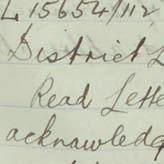 L 15654/112
District
Read Lette
acknowledg